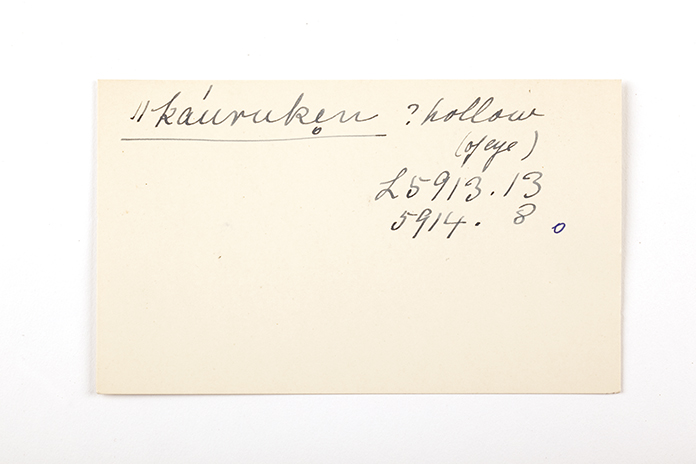 ǁkáuruken̥ ? hollow
(of eye)
L5913.13
5914. 8 o